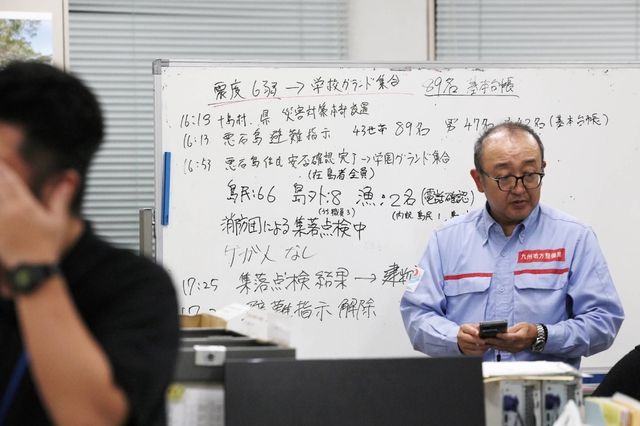 震度6弱→学校グランド集合 89名 基本台帳
16:19 十島村、県 災害対策本部設置
16:13 悪石島避難指示 43世帯 89名 男47名 42名(基本台帳)
16:53 悪石島住民安否確認完了→学園グランド集合
(在島者全員)
島民:66 島外:8 漁:2名 (電話確認)
(内訳 島民1、
消防団による集落点検中
ケガ人なし
17:25 集落点検結果→建物
避難指示解除
九州地方整備局